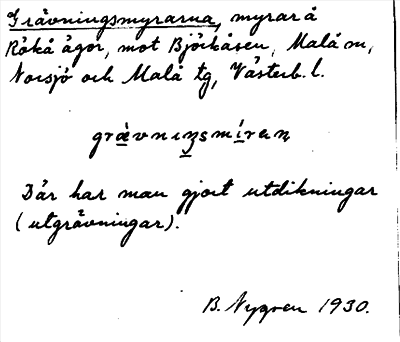 Grävningsmyrarna, myrar å
Rökå ägor, mot Björkåsen, Malå sn,
Norsjö och Malå tg, Västerb. l.
grävnıŋsmíran
Där har man gjort utdikningar
(utgrävningar).
B. Nygren 1930.